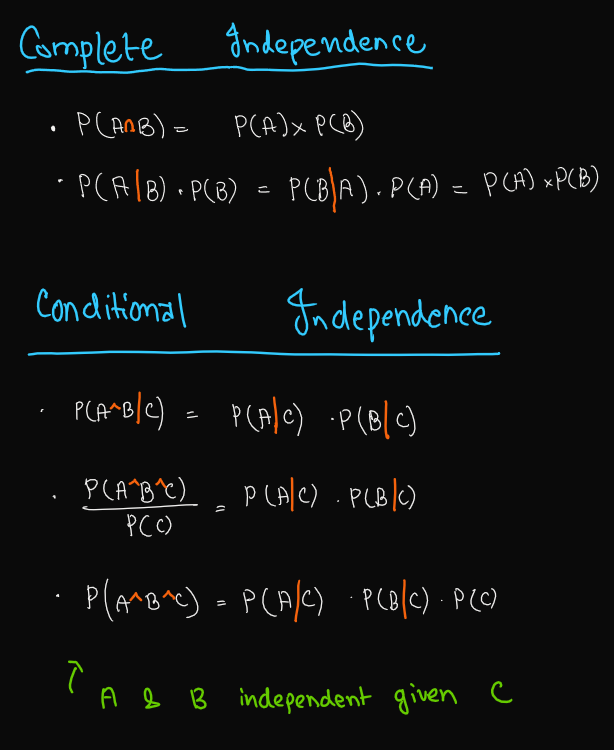 Complete Independence
• P(A∩B) = P(A) × P(B)
• P(A|B) . P(B) = P(B|A) . P(A) = P(A) × P(B)
Conditional Independence
• P(A^B|C) = P(A|C) . P(B|C)
• P(A^B^C) / P(C) = P(A|C) . P(B|C)
• P(A^B^C) = P(A|C) . P(B|C) . P(C)
↑ A & B independent given C